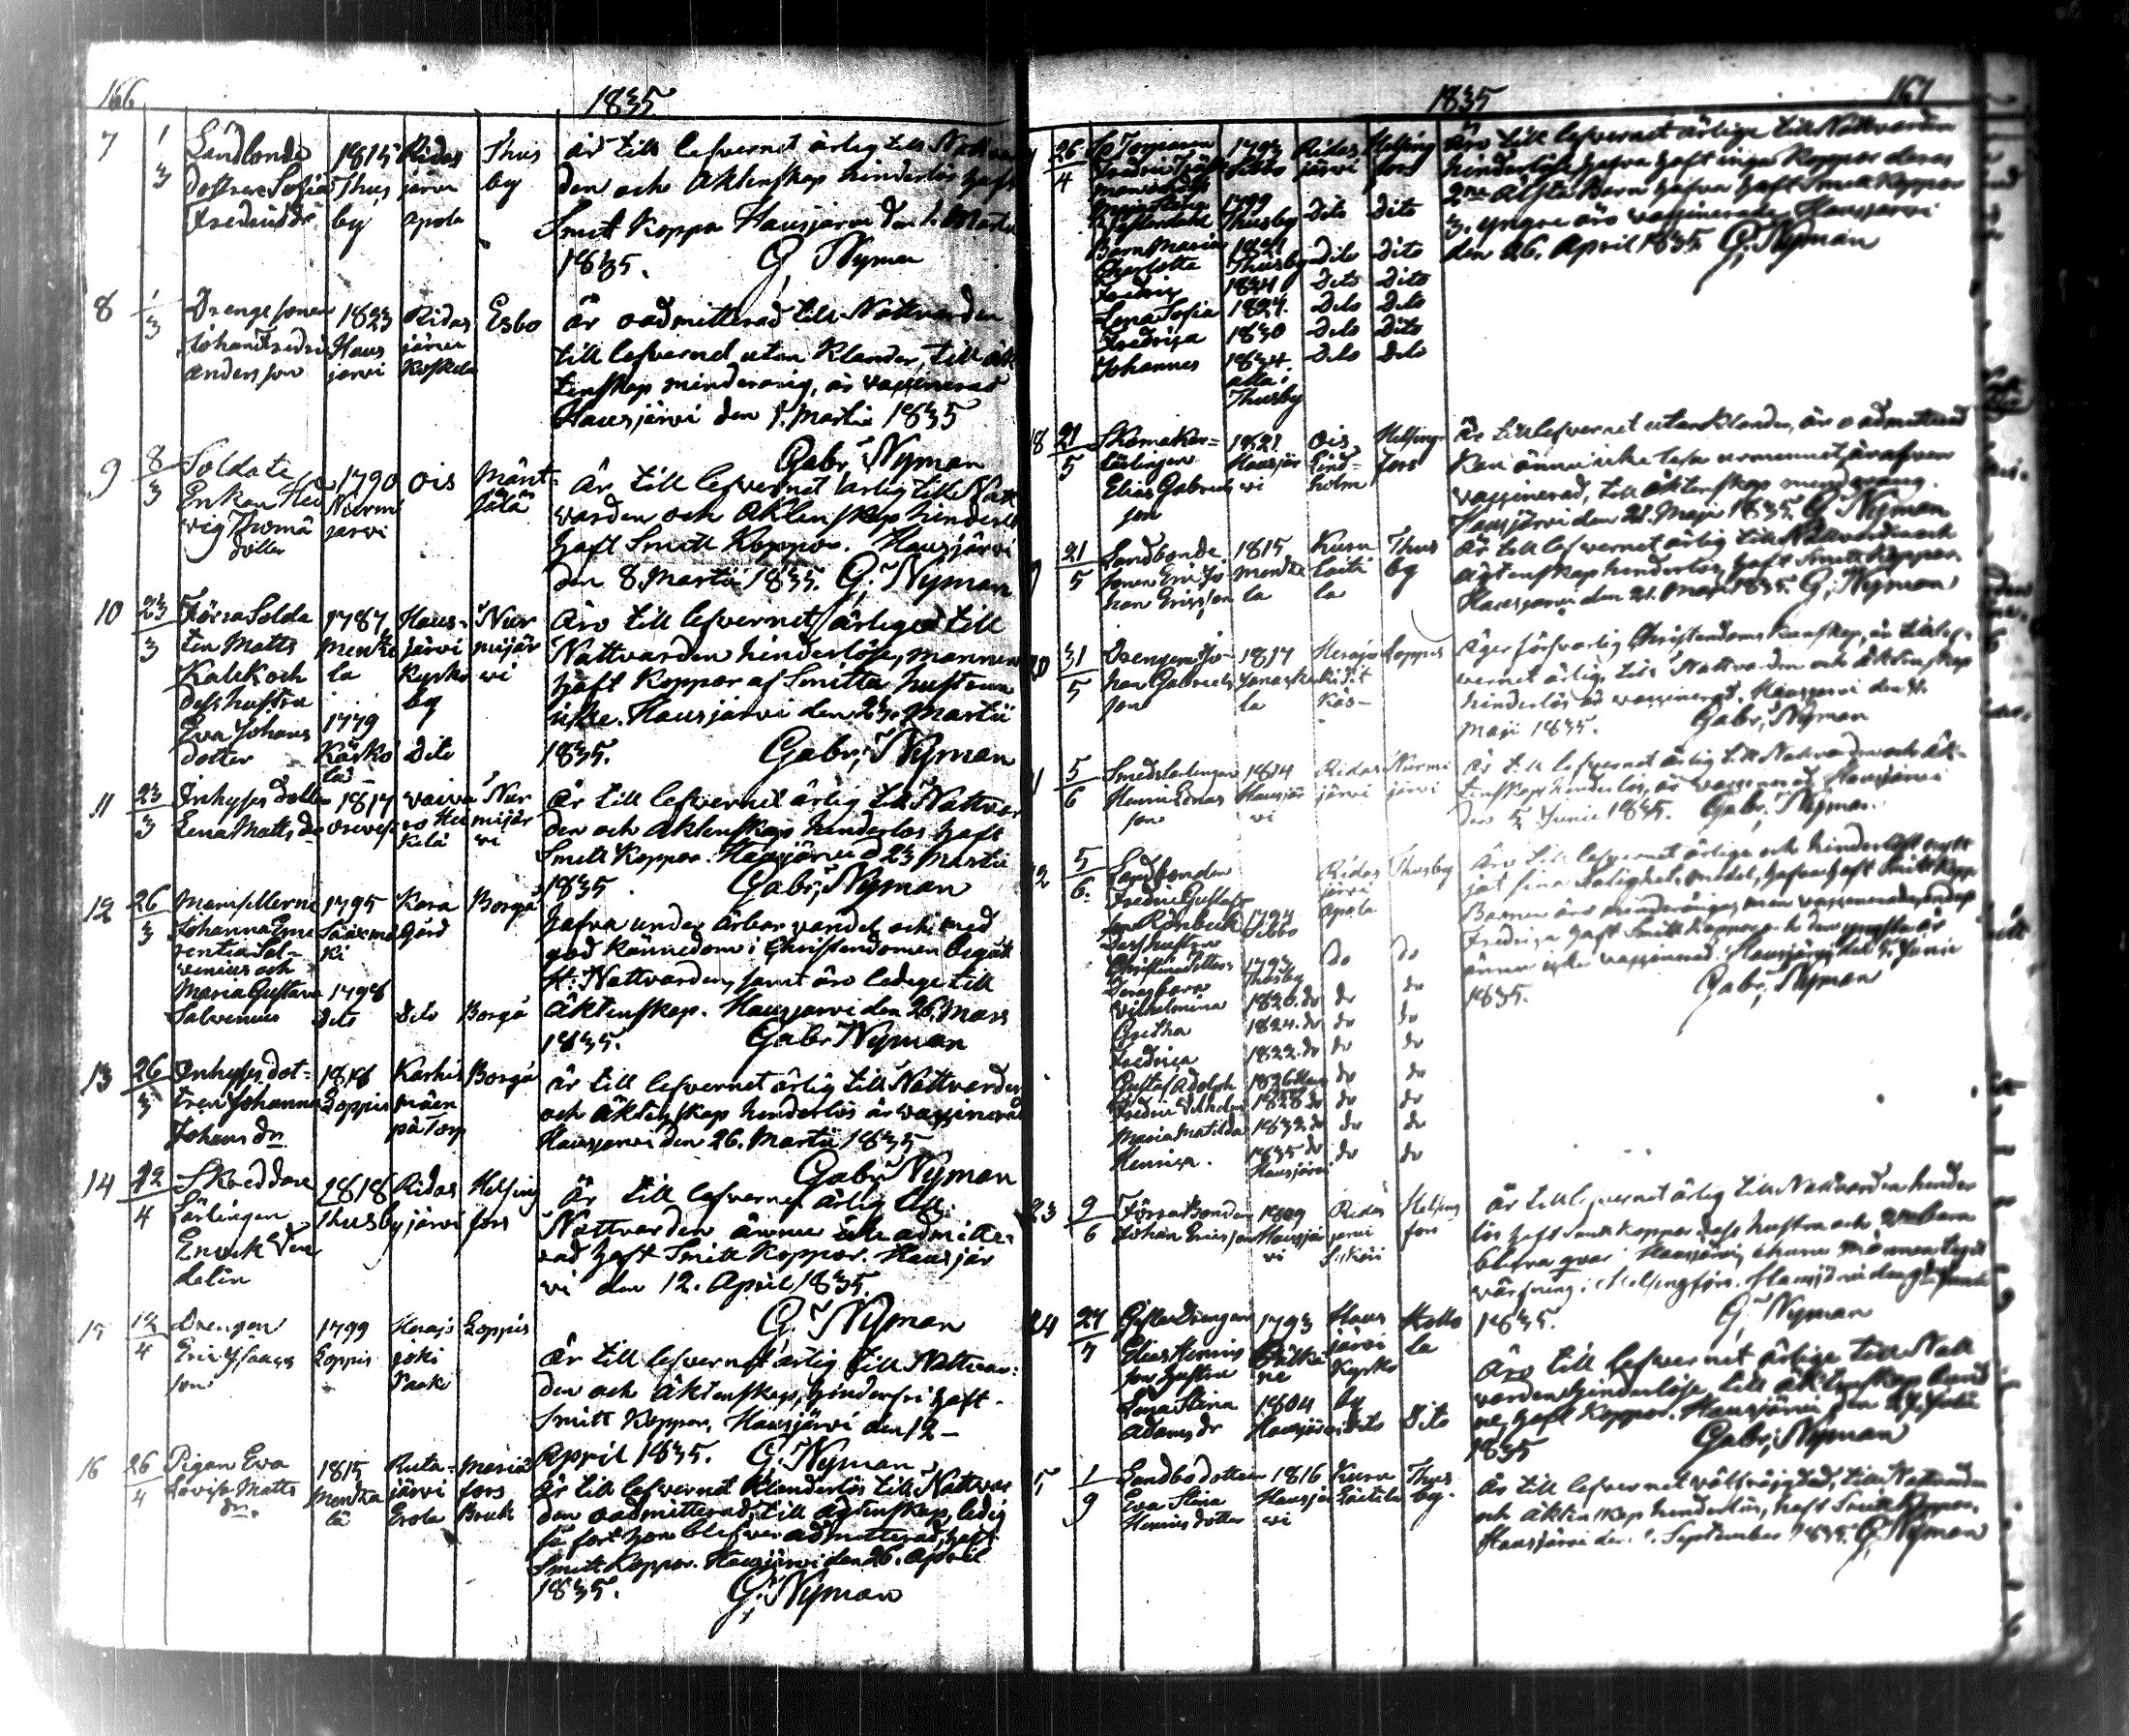 166
1835
7
1
3
Landbonde
dottren Sofia
Fredriksdr
1815
Thus
by
Ridas
järvi
apola
Thus
by
är till lefvernet ärlig till Nattvar
den och Äktenskap hinderlös haft
Smitt Koppor Hausjärvi den 1. Martii
1835. G. Nyman
8
1
3
Drengesonen
Johan Fredric
Andersson
1823
Haus
järvi
Ridas
järvi
Koskela
Esbo
är oadmitterad till Nattvarden
till lefvernet utan Klander, till äk
tenskap minderårig, är vaxinerad
Hausjärvi den 1. Martii 1835
Gabr. Nyman
9
8
3
Soldate
Enkan Hed
vig Thomä
dotter
1790
Nurmi
järvi
Ois
Mänt
sälä
Är till lefvernet ärlig till Natt
varden och Äktenskap hinderlös
haft Smitt Koppor. Hausjärvi
den 8. Martii 1835. G. Nyman
10
23
3
Förra Solda
ten Matts
Kalek och
dess hustru
Eva Johans
dotter
1787
Menkä
la
1779
Käsko
lä
Haus-
järvi
Kyrko
by
Dito
Nur
mijär
vi
Äro till lefvernet ärliga till
Nattvarden hinderlöse, mannen
haft Koppor af Smitta hustrun
icke. Hausjärvi den 23. Martii
1835. Gabr. Nyman
11
23
3
Inhyses dotter
Lena Matts dr
1817
Nur
mijär
vi
Är till lefvernet ärlig till Nattvar
den och Äktenskap hinderlös haft
Smitt Koppor. Hausjärvi d 23 Martii
1835. Gabr. Nyman
12
26
3
Mamsellerne
Johanna Eme
rentia Sal-
venius och
Maria Gustava
Salvenius
1795
Sääxmä
ki
1798
Dito
Kara
Gård
Dito
Borgå
Borgå
Hafva under ärbar vandel och med
god kännedom i Christendomen begått
H. Nattvarden, samt äro lediga till
Äktenskap. Hausjärvi den 26. Mars
1835. Gabr Nyman
13
26
3
Inhyses dot-
tren Johanna
Johans dr
1818
Loppis
Karhis
mäen
på Torp
Borgå
är till lefvernet ärlig till Nattvarden
och Äktenskap hinderlös är vaxinerad
Hausjärvi den 26. Martii 1835
Gabr Nyman
14
12
4
Skreddare
Lärlingen
Enock Wen
delin
1818
Thusby
Ridas
järvi
Helsing
fors
Är till lefvernet ärlig till
Nattvarden ännu icke admitte-
rad haft Smitt Koppor. Hausjär
vi den 12. April 1835.
G. Nyman
15
12
4
Drengen
Eric Isaacs
son
1799
Loppis
Herajo
joki
Paak
Loppis
Är till lefvernet ärlig till Nattvar-
den och Äktenskap, hinderfri haft
Smitt Koppor, Hausjärvi den 12
April 1835. G. Nyman
16
26
4
Pigan Eva
Lovisa Matts
dr.
1815
Menkä
lä
Ruta-
järvi
Erola
Maria
fors
Bruk
Är till lefvernet Klanderlös till Nattvar
den oadmitterad, till ägtenskap, ledig
så fort hon blefver admitterad, haft
Smitt Koppor. Hausjärvi den 26. April
1835. G. Nyman
1835
167
26
4
1793
Sibbo
Ridas
järvi
Helsing
fors
1799
Thusby
Dito
Dito
Barn Maria
Charlotta
1821
Thusby
Dito
Dito
Fredric
1824
Dito
Dito
Lena Sofia
1827.
Dito
Dito
Fredrica
1830
Dito
Dito
Johannes
1834.
alla i
Thusby
Dito
Dito
Äro till lefvernet ärliga till Nattvarden
hinderlöse, hafva haft inga Koppor deras
2ne älsta Barn hafva haft Smitt Koppor
3. yngre äro vaxinerade. Hausjärvi
den 26. April 1835. G. Nyman
18
21
5
Skomakare-
Lärlingen
Elias Gabriels
son
1821
Hausjär
vi
Ois,
Lind-
holm
Helsing-
fors
Är till lefvernet utan Klander, är oadmitterad
vaxinerad, till äktenskap minderårig.
Hausjärvi den 21. Maji 1835. G. Nyman
21
5
Landbonde
Sonen Eric Jo
han Ericsson
1815
Menkä
la
Kuru
laiti
la
Thus
by
är till lefvernet ärlig till Nattvarden och
ägtenskap hinderlös, haft Smitt Koppor.
Hausjärvi den 21. Maji 1835. G. Nyman
20
31
5
Drengen Jo-
han Gabriels
son
1817
Loppis
Äger försvarlig Christendoms kunskap, är till lef-
vernet ärlig, till Nattvarden och äktenskap
hinderlös är vaxinerad. Hausjärvi den 31.
Maji 1835. Gabr. Nyman
5
6
Smedslärlingen
Henric Jonas
son
1814
Hausjär
vi
Ridas
järvi
Nurmi
järvi
är till lefvernet ärlig till Nattvarden och äk-
tenskap hinderlös, är vaxinerad. Hausjärvi
den 5 Junii 1835. Gabr. Nyman
22
5
6.
Landbonden
Fredric Gustafs
son Rönbeck
Dess hustru
Christina
Deras barn
1794
Sibbo
1793
Thusby
Ridas
järvi
Apola
Thusby
do
do
Vilhelmina
1820. do
do
do
Gretha
1824. do
do
do
Fredrica
1822. do
do
do
Gustaf Adolph
do
do
Fredric Vilhelm
1828 do
do
do
Maria Matilda
1832. do
do
do
Henrica.
1835 do
Hausjärvi
do
do
Äro till lefvernet ärliga och hinderlöst nytt
jat sina Salighets medel, hafva haft Smitt Kopp
Barnen äro minderåriga, men vaxinerade, endast
Fredrica haft Smitt Koppor och den yngsta är
ännu icke vaxinerad. Hausjärvi den 5. Junii
1835. Gabr. Nyman
23
9
6
Förra Bonden
Johan Ericsson
1809
Hausjär
vi
Ridas
järvi
Helsing
fors
Är till lefvernet ärlig till Nattvarden hinder
lös haft Smitt Koppor dess hustru och 2ne barn
blifva qvar i Hausjärvi, ehuru mannen tagit
värfning i Helsingfors. Hausjärvi den 9de Junii
1835. G. Nyman
24
27
7
Gifte Drengen
Elias Henrics
son hustru
Lena Stina
Adams dr
1793
1804
Hausjärvi
Haus
järvi
Kyrko
by
Dito
Hollo
la
Dito
Äro till lefvernet ärliga till Natt
varden hinderlöse, till äktenskap bund
ne, haft Koppor. Hausjärvi den 27. Julii
1835 Gabr. Nyman
5
1
9
Landbo dotter
Eva Stina
Henrics dotter
1816
Hausjär
vi
Kuru
laitila
Thus
by.
Är till lefvernet välfräjdad, till Nattvarden
och äktenskap hinderlös, haft Smitt Koppor,
Hausjärvi den 1. September 1835. G. Nyman